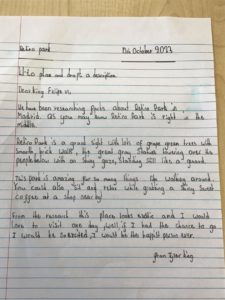 Retiro park 13th October 2023
LI-to plan and draft a description
Dear King Felipe VI,
We have been researching facts about Retiro Park in
Madrid. As you may know Retiro Park is right in the
middle.
Retiro Park is a grand sight with lots of grape green trees with
small brick walls, a grand gray statue towering over the
people below with an shiny gaze, standing still like a guard.
This park is amazing for so many things like walking around.
You could also sit and relax while grabing a sweet
coffee at a shop near by!
From the research this place looks and I would
love to visit one day, well if I had the choice to go
I would be I would be the happiest person ever.
from